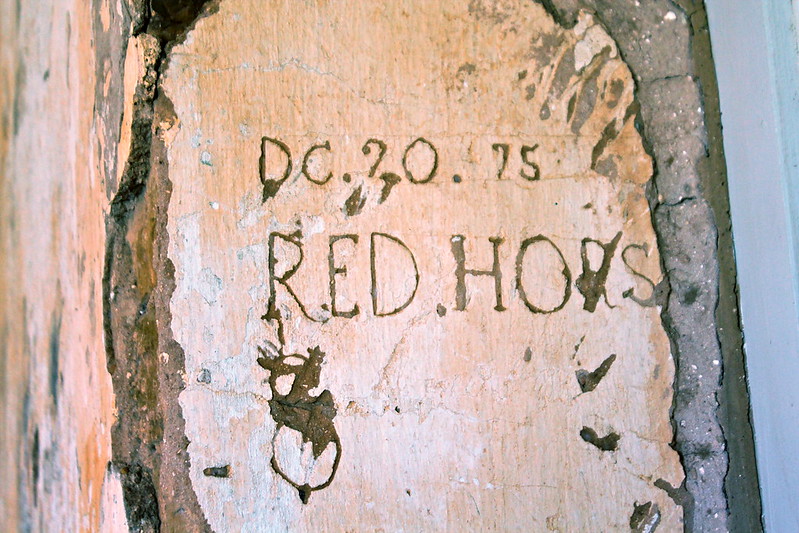 DC. 20. 75
RED. HORS